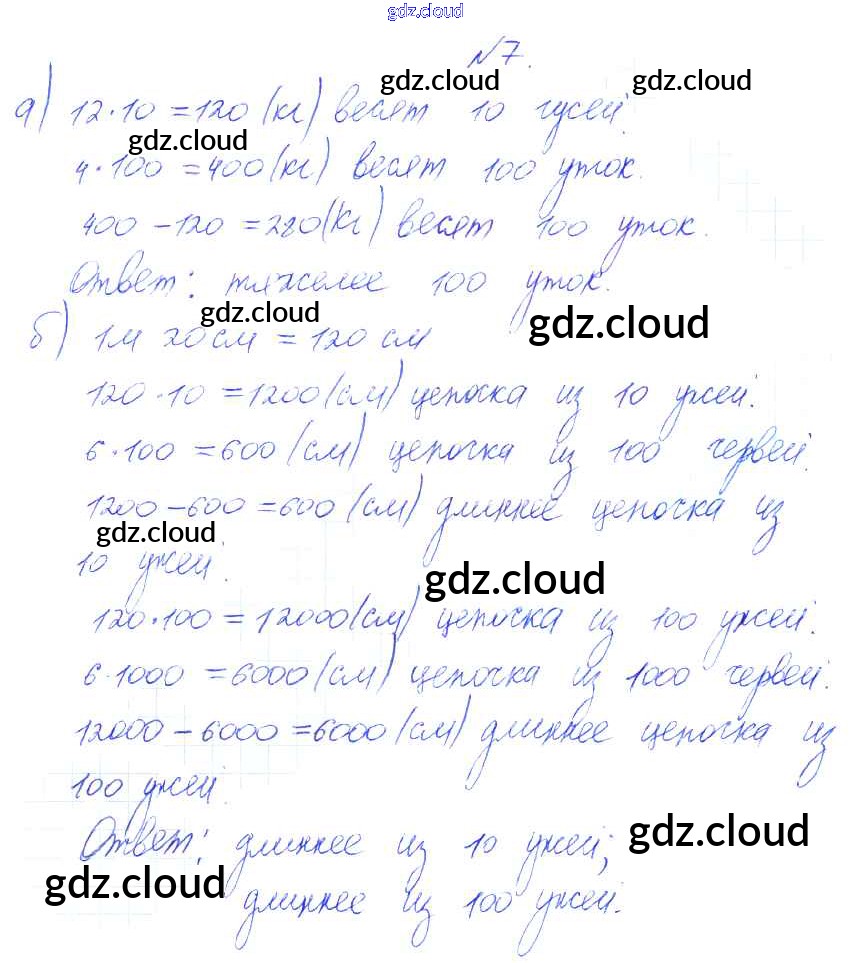 gdz.cloud
№7.
gdz.cloud gdz.cloud
а) 12·10 = 120 (кг) весят 10 гусей.
gdz.cloud
4·100 = 400 (кг) весят 100 уток.
400 - 120 = 280 (кг) весят 100 уток.
Ответ: тяжелее 100 уток.
gdz.cloud gdz.cloud
б) 1м 20 см = 120 см
120·10 = 1200 (см) цепочка из 10 ужей.
6·100 = 600 (см) цепочка из 100 червей.
1200 - 600 = 600 (см) длиннее цепочка из
gdz.cloud
10 ужей.
gdz.cloud
120·100 = 12000 (см) цепочка из 100 ужей.
6·1000 = 6000 (см) цепочка из 1000 червей.
12000 - 6000 = 6000 (см) длиннее цепочка из
100 ужей.
gdz.cloud
Ответ: длиннее из 10 ужей;
gdz.cloud
длиннее из 100 ужей.